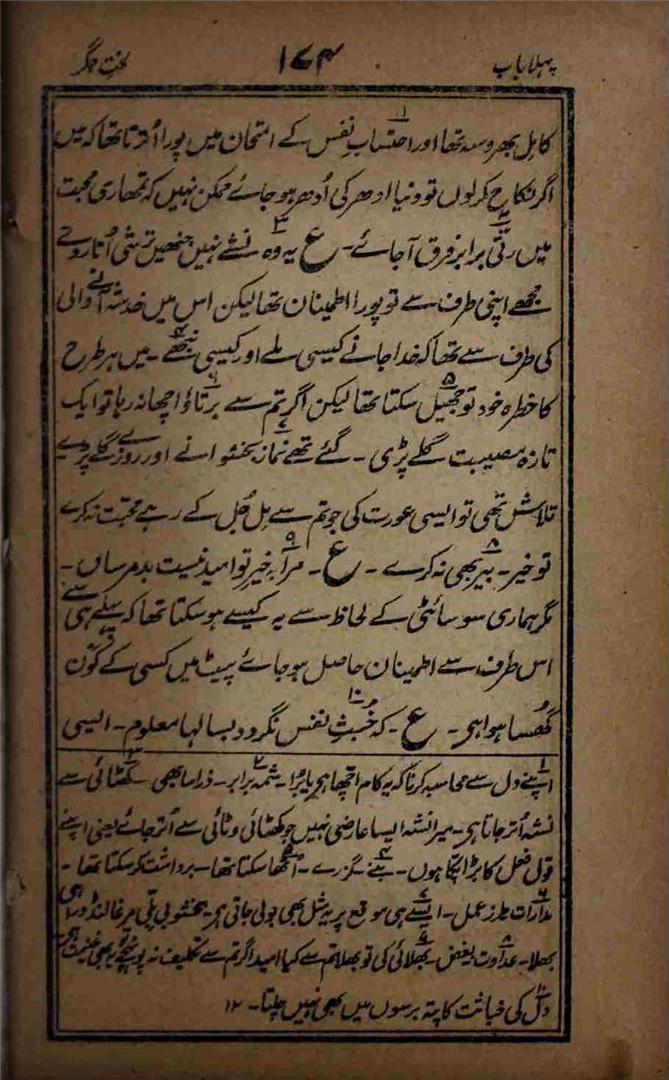 پہلا باب ۱۷۴ لخت جگر
کامل بھروسہ تھا اور احتساب نفس کے امتحان میں پورا اُترتا تھا کہ میں
اگر نکاح کر لوں تو دنیا ادھر کی اُدھر ہو جائے ممکن نہیں کہ تمھاری محبت
میں رتّی برابر فرق آجائے۔ ع یہ وہ نشے نہیں جنھیں ترشی اُتار دے
مجھے اپنی طرف سے تو پورا اطمینان تھا لیکن اس میں خدشہ آنے والی
کی طرف سے تھا کہ خدا جانے کیسی ملے اور کیسی نبھے۔ میں ہر طرح
کا خطرہ خود تو جھیل سکتا تھا لیکن اگر تم سے برتاؤ اچھا نہ رہا تو ایک
تازہ مصیبت گلے پڑی۔ گئے تھے نماز بخشوانے اور روزے گلے پڑے
تلاش تھی تو ایسی عورت کی جو تم سے مِل جُل کے رہے محبت نہ کرے
تو خیر۔ بیر بھی نہ کرے۔ ع۔ مرا بہ خیر تو امید نیست بدمرساں۔
مگر ہماری سوسائٹی کے لحاظ سے یہ کیسے ہو سکتا تھا کہ پہلے ہی سے
اس طرف سے اطمینان حاصل ہو جائے پیٹ میں کسی کے کون
گھُسا ہوا ہی۔ ع۔ کہ خبث نفس نگردد بسالہا معلوم۔ ایسی
۱ اپنے دل سے محاسبہ کرنا کہ یہ کام اچھا ہی یا بُرا۔ ۲ شمہ برابر۔ ذرا سا بھی۔ ۳ کھٹائی سے
نشہ اُتر جاتا ہی۔ میرا نشہ ایسا عارضی نہیں جو کھٹائی وٹائی سے اُتر جائے یعنی اپنے
قول فعل کا بڑا پکّا ہوں۔ ۴ بنے۔ گزرے۔ ۵ اُٹھا سکتا تھا۔ برداشت کر سکتا تھا۔
۶ مدارات طرز عمل۔ ۷ ایسے ہی موقع پر یہ مثل بھی بولی جاتی ہی۔ بخشو بی بلّی مرغا لنڈورا ہی
بھلا۔ ۸ عداوت بغض۔ ۹ بھلائی کی تو بھلا تم سے کیا امید اگر تم سے تکلیف نہ پہونچے تو بھی غنیمت ہی
۱۰ دل کی خباثت کا پتہ برسوں میں بھی نہیں چلتا۔ ۱۲